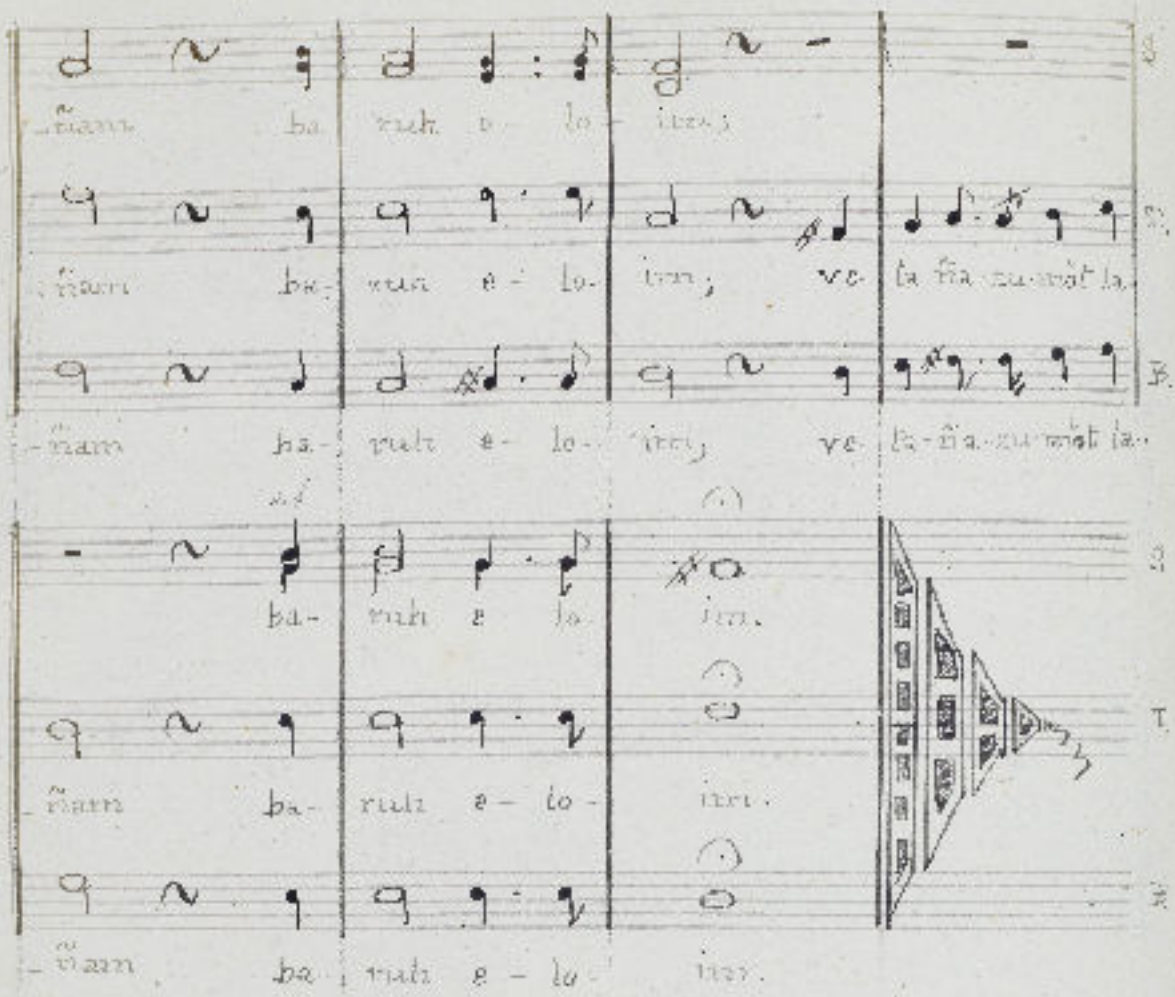 -ñam ba ruh e- lo- im;
-ñam ba- ruh e- lo- im; ve- ta-ña-zu-môt la-
-ñam ba- ruh e- lo- im; ve- ta-ña-zu-môt la-
ba- ruh e- lo- im.
-ñam ba- ruh e- lo- im.
T.
-ñam ba- ruh e- lo- im.